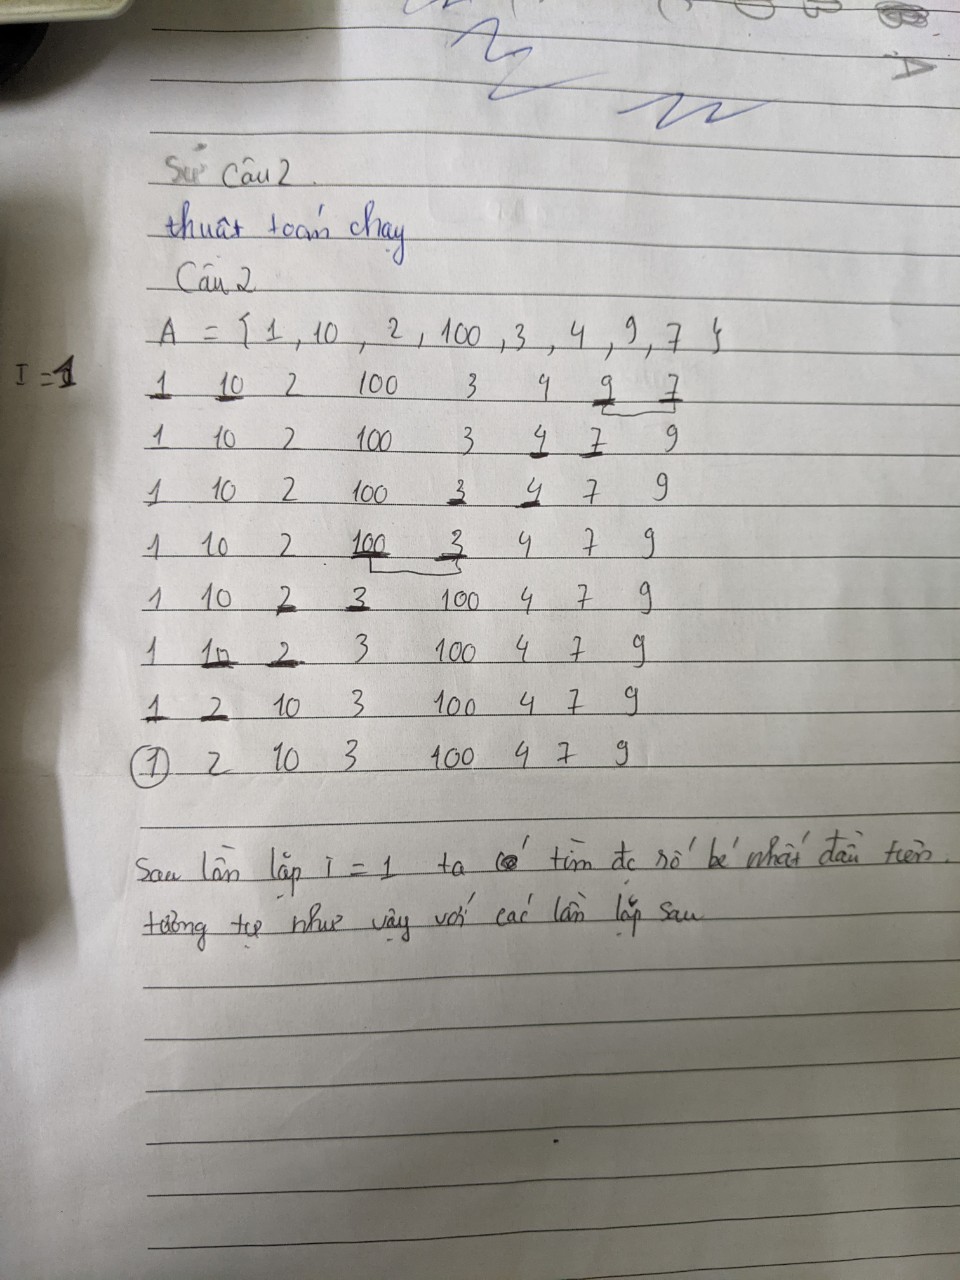 Sử Câu 2.
thuật toán chạy
Câu 2
A = { 1 , 10 , 2 , 100 , 3 , 4 , 9 , 7 }
I = 1
1 10 2 100 3 4 9 7
1 10 2 100 3 4 7 9
1 10 2 100 3 4 7 9
1 10 2 100 3 4 7 9
1 10 2 3 100 4 7 9
1 10 2 3 100 4 7 9
1 2 10 3 100 4 7 9
1 2 10 3 100 4 7 9
Sau lần lặp i = 1 ta tìm đc số bé nhất đầu tiên.
tương tự như vậy với các lần lặp sau